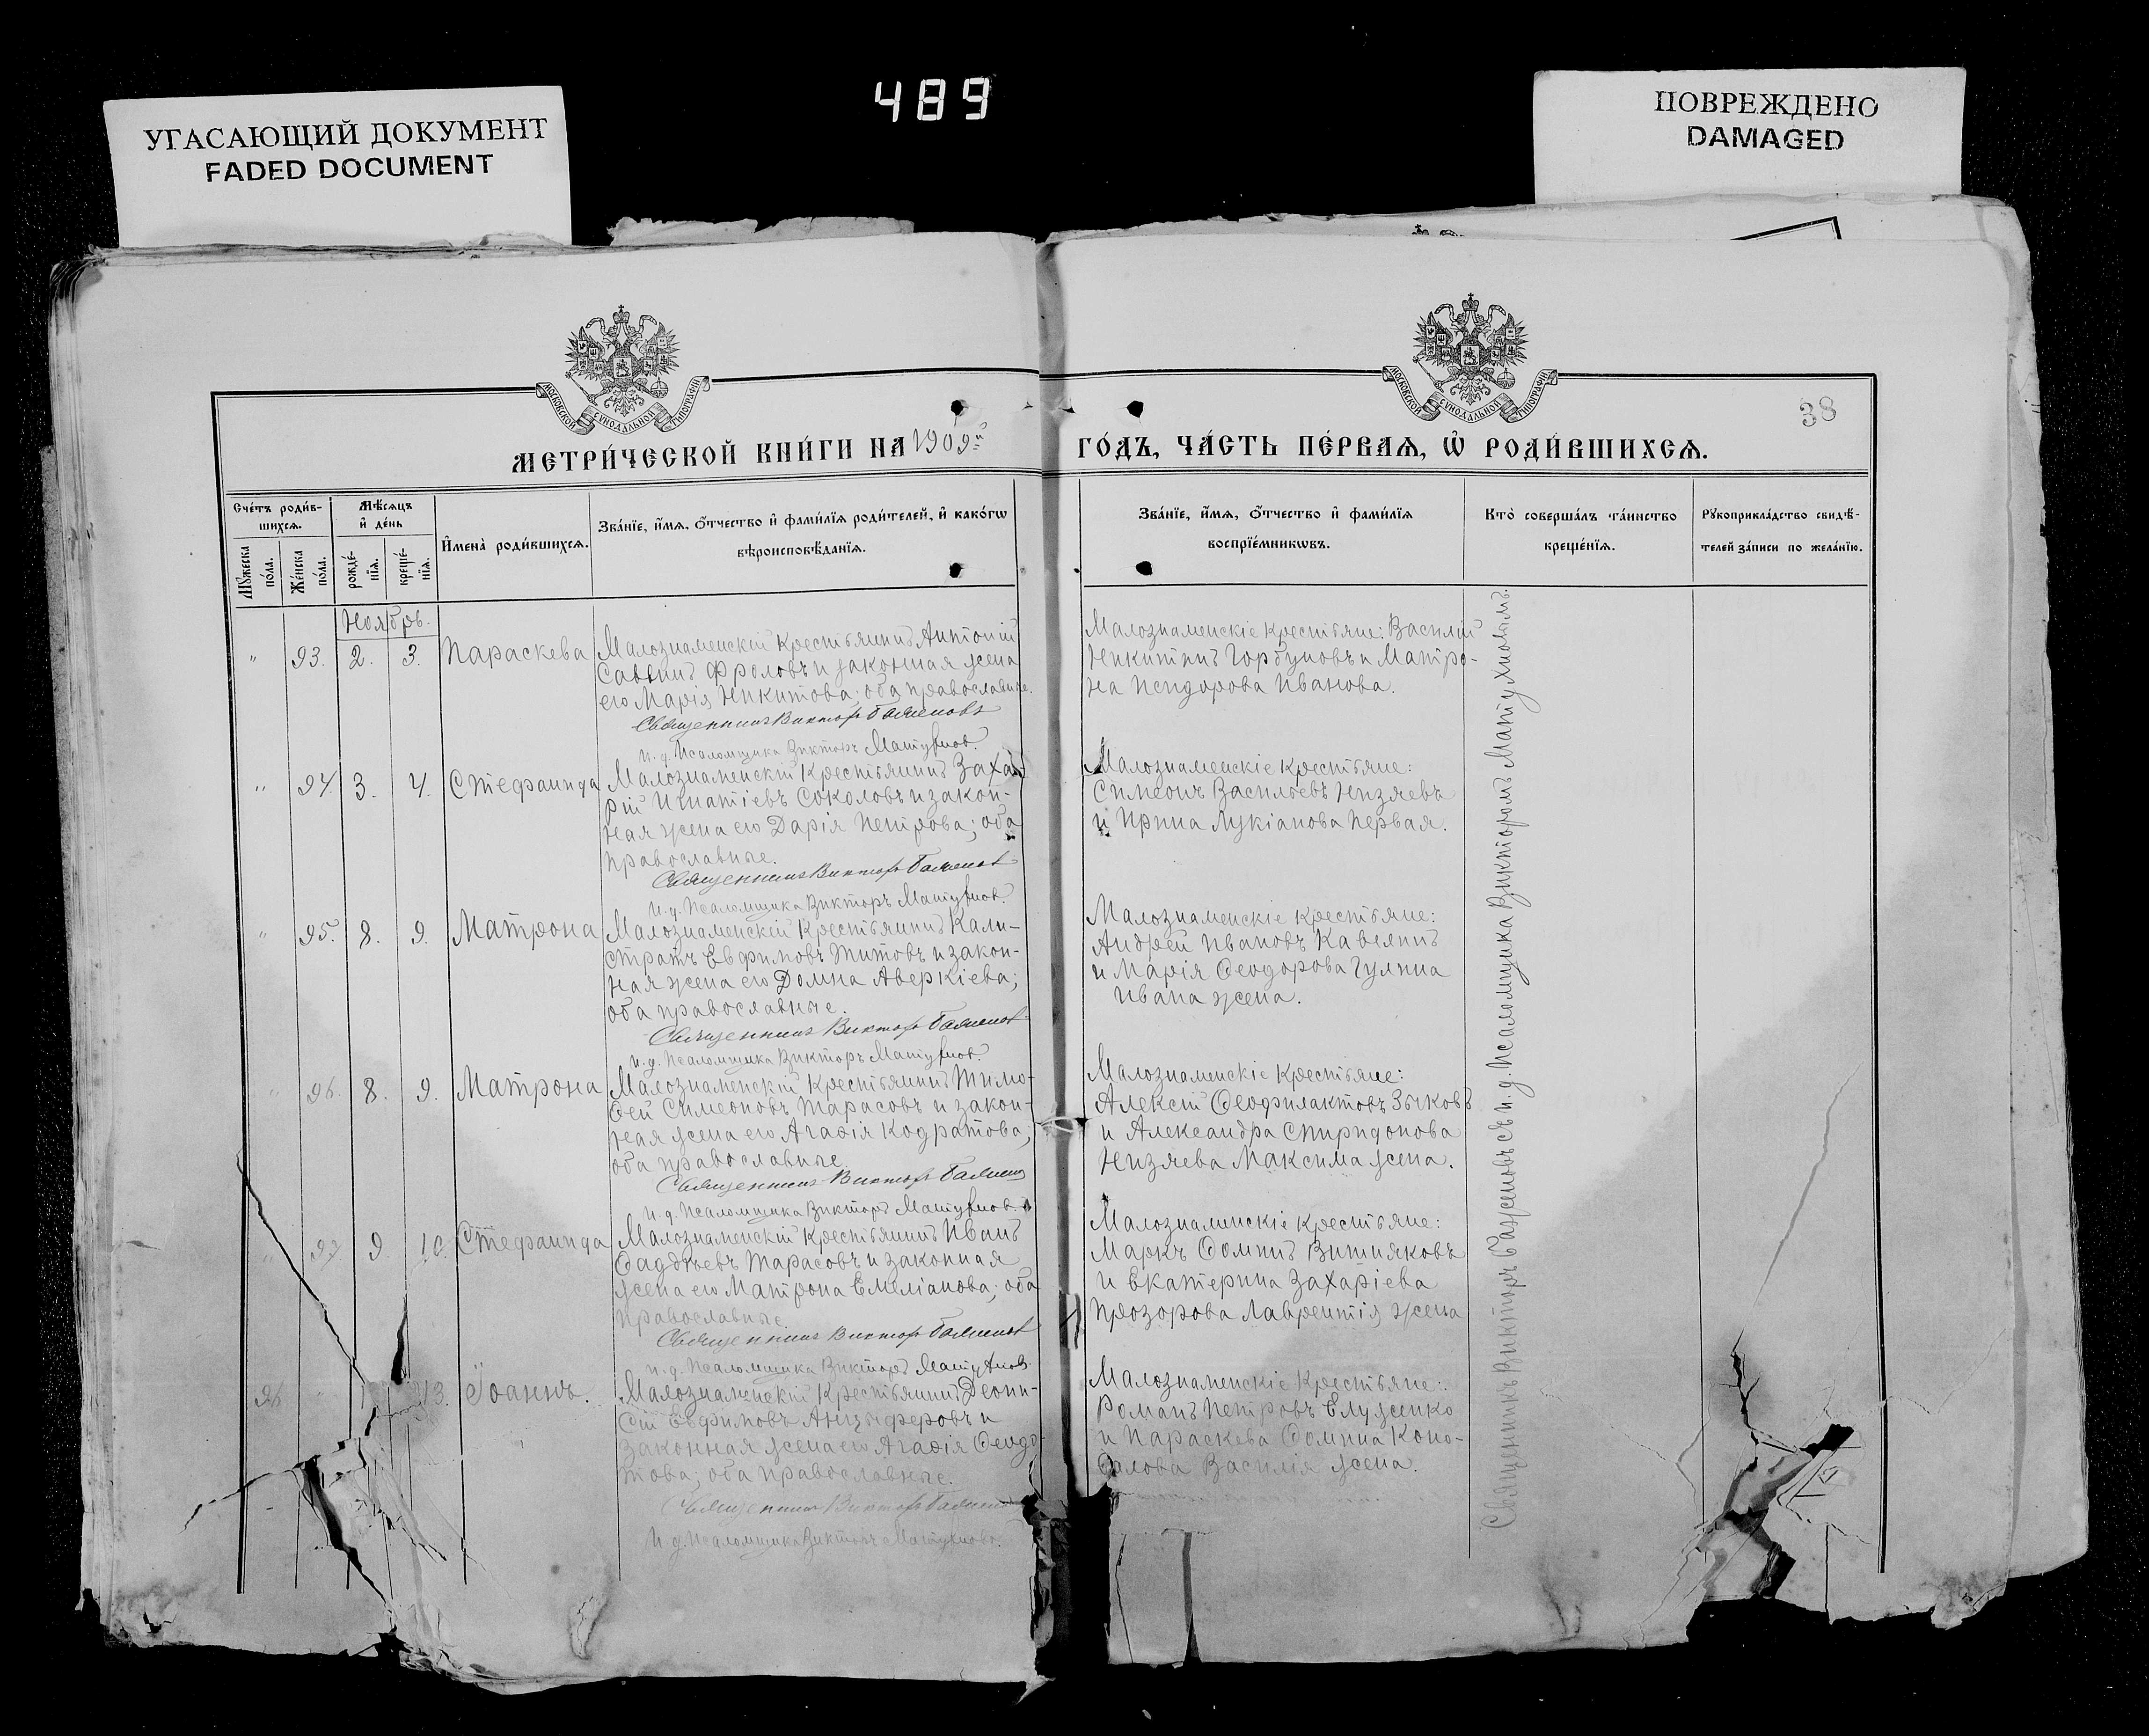 489
УГАСАЮЩИЙ ДОКУМЕНТ
FADED DOCUMENT
ПОВРЕЖДЕНО
DAMAGED
МОСКОВСКОЙ СѴНОДАЛЬНОЙ ТИПОГРАФІИ
МОСКОВСКОЙ СѴНОДАЛЬНОЙ ТИПОГРАФІИ
38
МЕТРИ́ЧЕСКОЙ КНИ́ГИ НА 1909й
ГО́ДЪ, ЧА́СТЬ ПЕ́РВАѦ, Ѡ҆ РОДИ́ВШИХСѦ.
Сче́тъ роди́в-
шихсѧ.
Мѣ́сѧцъ
и҆ де́нь
Мꙋ́жеска
по́ла.
Же́нска
по́ла.
рожде́-
нїѧ.
креще́-
нїѧ.
И҆мена̀ роди́вшихсѧ.
Зва́нїе, и҆́мѧ, ѻ҆́тчество и҆ фами́лїѧ роди́телей, и҆ како́гѡ
вѣроисповѣ́данїѧ.
Зва́нїе, и҆́мѧ, ѻ҆́тчество и҆ фами́лїѧ
воспрїе́мникѡвъ.
Кто̀ соверша́лъ та́инство
креще́нїѧ.
Рꙋкоприкла́дство свидѣ́-
телей за́писи по жела́нїю.
Ноябрь.
" 93. 2. 3. Параскева
Малознаменскій крестьянинъ Антоній
Саввинъ Фроловъ и законная жена
его Марія Никитова; оба православные.
Священникъ Викторъ Баженовъ
и.д. Псаломщика Викторъ Матухновъ.
Малознаменскіе крестьяне: Василій
Никитинъ Горбуновъ и Матро-
на Исидорова Иванова.
" 94 3. 4. Стефанида
Малознаменскій крестьянинъ Заха-
рій Игнатіевъ Соколовъ и закон-
ная жена его Дарія Петрова; оба
православные.
Священникъ Викторъ Баженовъ
и.д. Псаломщика Викторъ Матухновъ.
Малознаменскіе крестьяне:
Симеонъ Васильевъ Низяевъ
и Ирина Лукіанова Первая.
" 95. 8. 9. Матрона
Малознаменскій крестьянинъ Кали-
стратъ Евфимовъ Титовъ и закон-
ная жена его Домна Аверкіева;
оба православные.
Священникъ Викторъ Баженовъ
и.д. Псаломщика Викторъ Матухновъ.
Малознаменскіе крестьяне:
Андрей Ивановъ
и Марія Ѳеодорова Гулина
Ивана жена.
" 96. 8. 9. Матрона
Малознаменскій крестьянинъ Тимо-
ѳей Симеоновъ Тарасовъ и закон-
ная жена его Агаѳія Кодратова;
оба православные.
Священникъ Викторъ Баженовъ
и.д. Псаломщика Викторъ Матухновъ.
Малознаменскіе крестьяне:
Алексій Ѳеофилактовъ Зыковъ
и Александра Спиридонова
Низяева Максима жена.
" 97 9. 10. Стефанида
Малознаменскій крестьянинъ Иванъ
Ѳаддѣевъ Тарасовъ и законная
жена его Матрона Емеліанова; оба
православные.
Священникъ Викторъ Баженовъ
и.д. Псаломщика Викторъ Матухновъ.
Малознаменскіе крестьяне:
Маркъ Ѳоминъ Вишняковъ
и Екатерина Захаріева
Прозорова Лаврентія жена
13. Іоаннъ.
Малознаменскій крестьянинъ Діони-
сій Евфимовъ Анцыферовъ и
законная жена его Агаѳія Ѳеодо-
това; оба православные.
Священникъ Викторъ Баженовъ
и.д. Псаломщика Викторъ Матухновъ.
Малознаменскіе крестьяне:
Романъ Петровъ
и Параскева Ѳомина
Василія жена.
Священникъ Викторъ Баженовъ съ и.д. Псаломщика Викторомъ Матухновымъ.